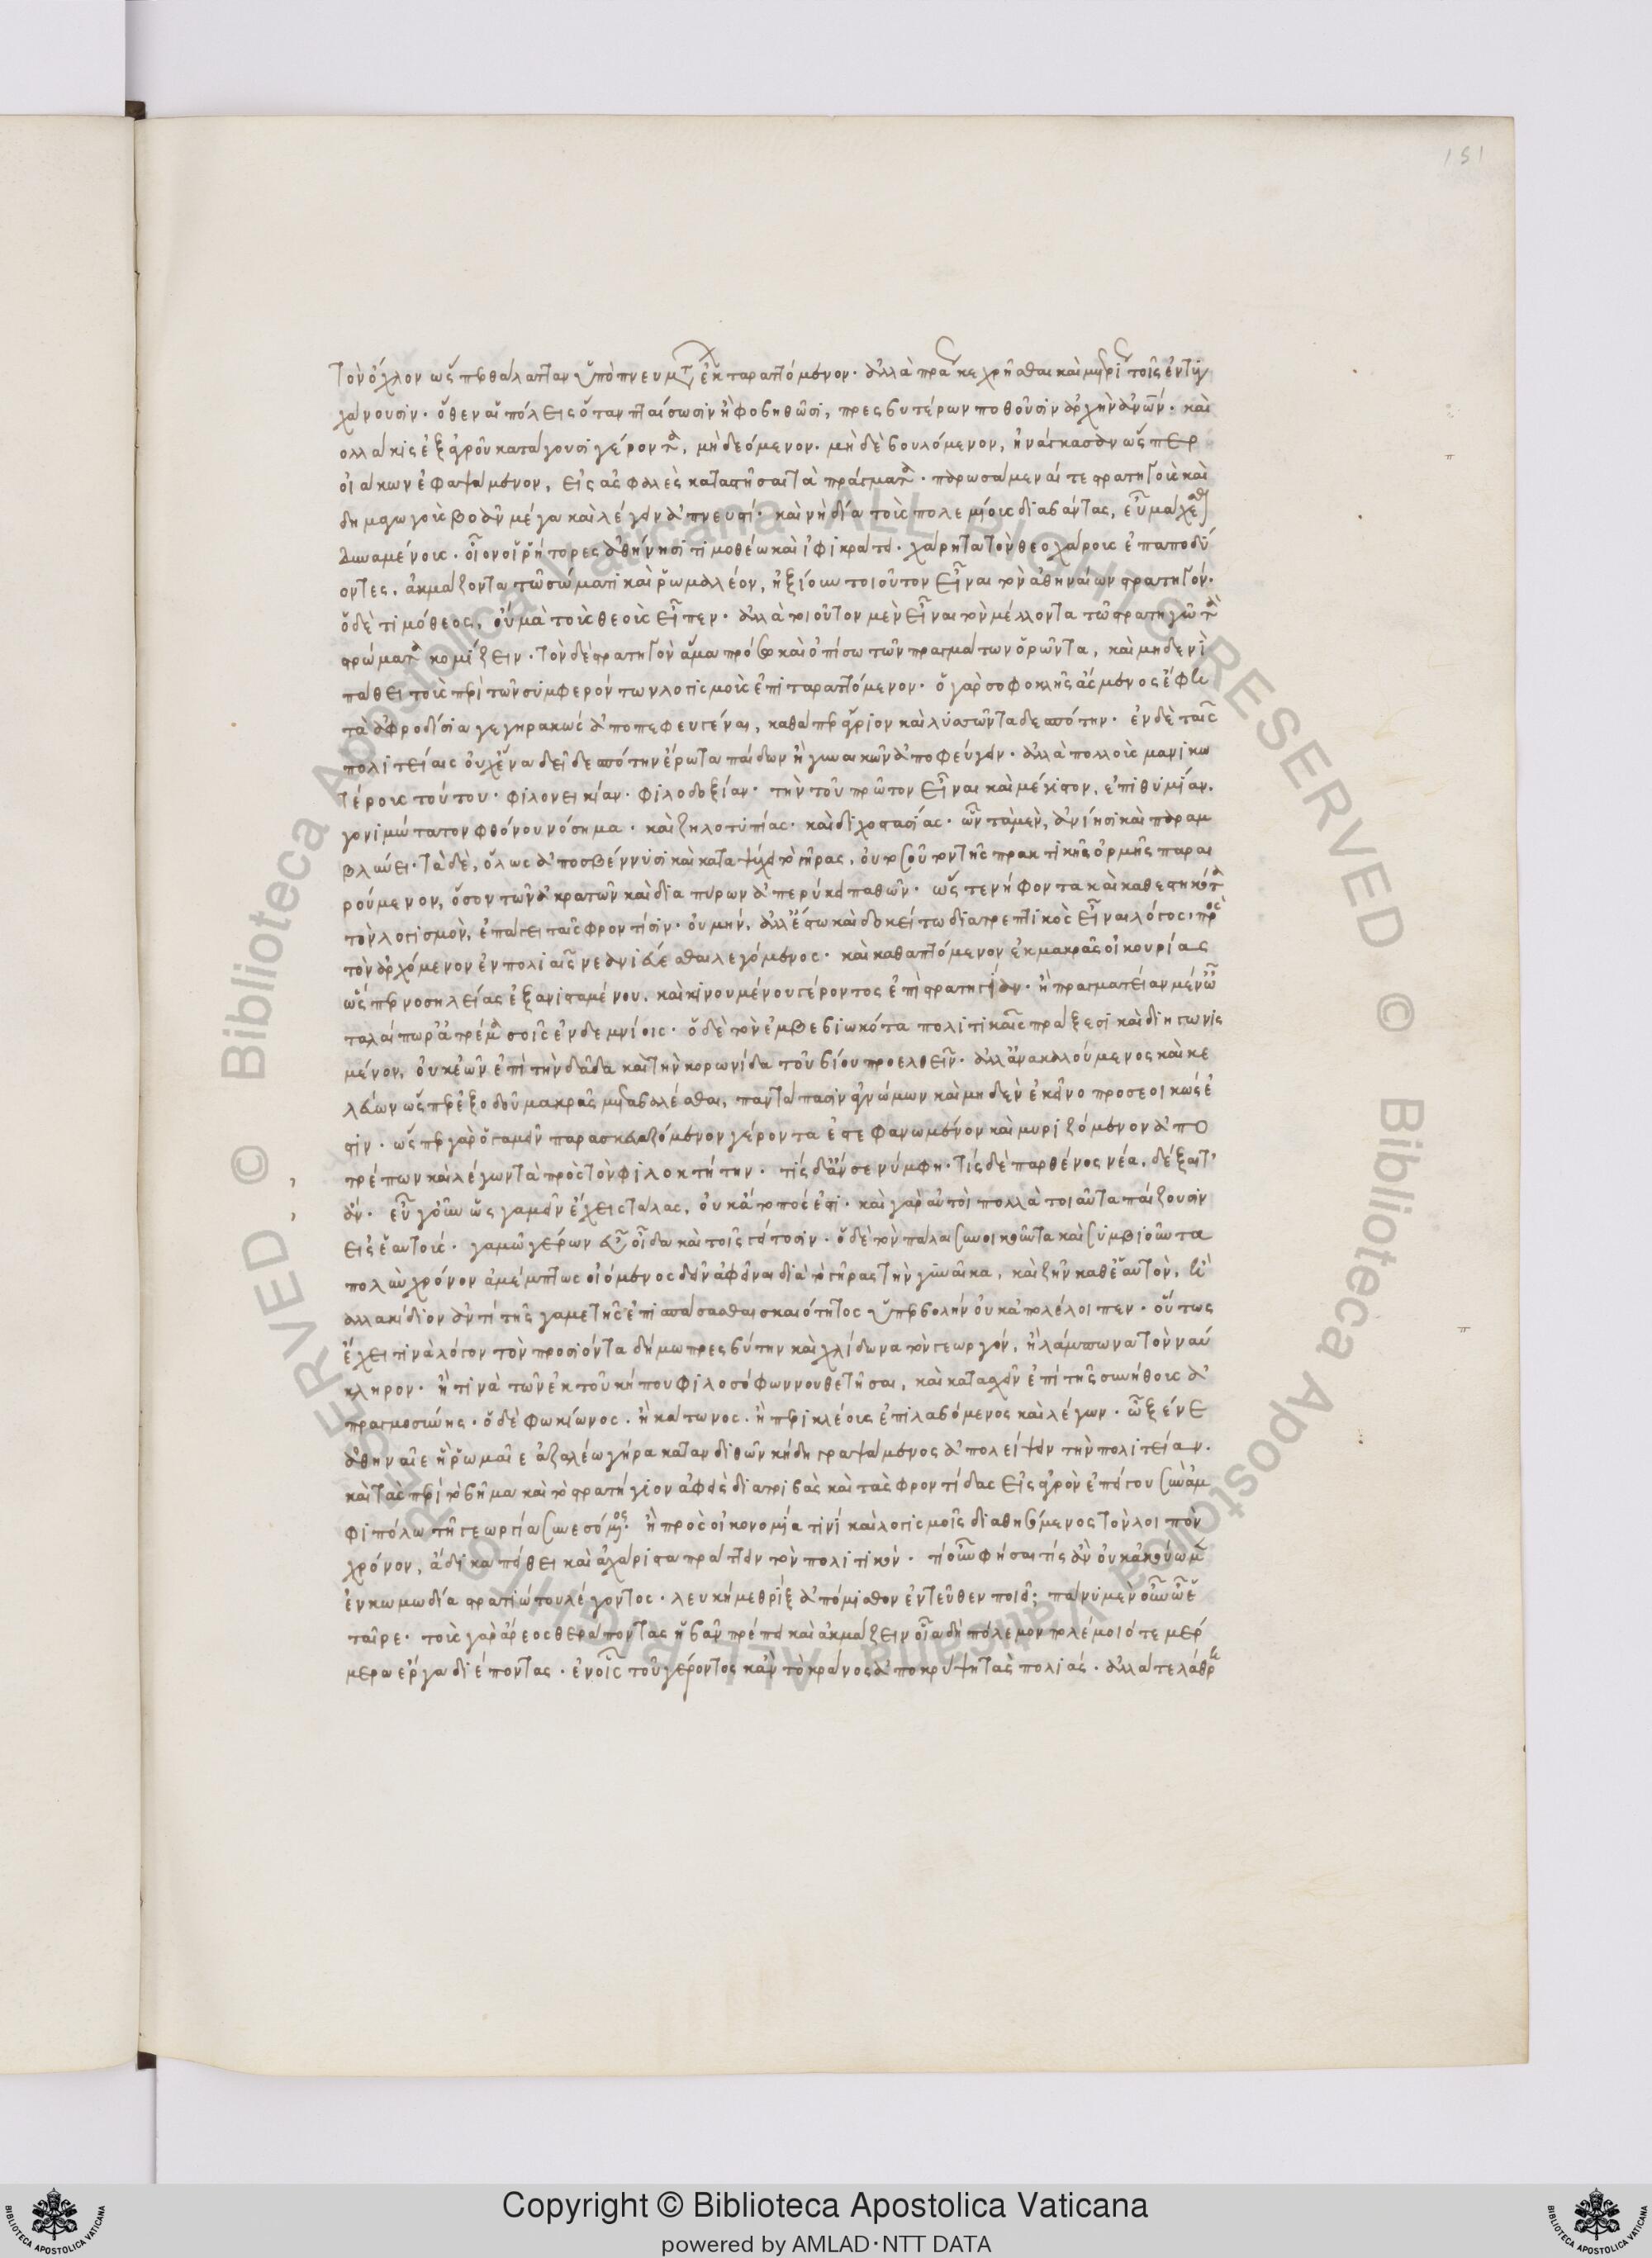 151
τὸν ὄχλον ὥσπερ θάλατταν ὑπὸ πνευμάτων ἐκταραττόμενον· ἀλλὰ πράως κεχρῆσθαι καὶ μετρίως τοῖς ἐντυγ
χάνουσιν· ὅθεν αἱ πόλεις ὅταν πταίσωσιν ἢ φοβηθῶσι, πρεσβυτέρων ποθοῦσιν ἀρχὴν ἀνθρώπων· καὶ
ολλακις ἐξ ἀγροῦ κατάγουσι γέροντα, μὴ δεόμενον. μὴ δὲ βουλόμενον, ἠνάγκασαν ὥσπερ
οἰάκων ἐφαψάμενον, εἰς ἀσφαλὲς καταστῆσαι τὰ πράγματα· παρωσάμεναί τε στρατηγοὺς καὶ
δημαγωγοὺς βοᾶν μέγα καὶ λέγειν ἀπνευστί· καὶ νὴ δία τοὺς πολεμίοις διαβάντας, εὖ μάχεσθαι
δυναμένους· οἷον οἱ ῥήτορες ἀθήνησι τιμοθέω καὶ ἰφικράτει· χάρητα τὸν θεοχάρους ἐπαποδύ
οντες, ἀκμάζοντα τῶ σώματι καὶ ῥωμαλέον, ἠξίουν τοιοῦτον εἶναι τὸν ἀθηναίων στρατηγόν·
ὁ δὲ τιμόθεος, οὐ μὰ τοὺς θεοὺς εἶπεν· ἀλλὰ τοιοῦτον μὲν εἶναι τὸν μέλλοντα τῶ στρατηγῶ τὰ
στρώματα κομίζειν· τὸν δὲ στρατηγὸν ἅμα πρόσω καὶ ὀπίσω τῶν πραγμάτων ὁρῶντα, καὶ μηδενὶ
πάθει τοὺς περὶ τῶν συμφερόντων λογισμοὺς ἐπιταραττόμενον· ὁ γὰρ σοφοκλῆς ἄσμενος ἔφη
τὰ ἀφροδίσια γεγηρακὼς ἀποπεφευγέναι, καθάπερ ἄγριον καὶ λυσσῶντα δεσπότην· ἐν δὲ ταῖς
πολιτείαις οὐχ ἕνα δεῖ δεσπότην ἔρωτα παίδων ἢ γυναικῶν ἀποφεύγειν· ἀλλὰ πολλοὺς μανικω
τέρους τούτου· φιλονεικίαν· φιλοδοξίαν· τὴν τοῦ πρῶτον εἶναι καὶ μέγιστον, ἐπιθυμίαν.
γονιμώτατον φθόνου νόσημα· καὶ ζηλοτυπίας· καὶ διχοστασίας· ὧν τὰ μὲν, ἀνίησι καὶ παραμ
βλύνει· τὰ δὲ, ὅλως ἀποσβέννυσι καὶ καταψύχει τὸ γῆρας, οὐ τοσοῦτον τῆς πρακτικῆς ὁρμῆς παραι
ρούμενον, ὅσον τῶν ἀκρατῶν καὶ διαπύρων ἀπερύκει παθῶν· ὥστε νήφοντα καὶ καθεστηκότα
τὸν λογισμὸν, ἐπάγει ταῖς φροντίσιν· οὐ μὴν, ἀλλ' ἔστω καὶ δοκείτω διατρεπτικὸς εἶναι λόγος, πρὸς
τὸν ἀρχόμενον ἐν πολιαῖς νεανιεύεσθαι λεγόμενος· καὶ καθαπτόμενον ἐκ μακρᾶς οἰκουρίας
ὥσπερ νοσηλείας ἐξανισταμένου, καὶ κινουμένου γέροντος ἐπὶ στρατηγίαν· ἢ πραγματείαν μέν' ὦ
ταλαίπωρ' ἀτρέμα σοῖς ἐν δεμνίοις· ὁ δὲ τὸν ἐμβεβιωκότα πολιτικαῖς πράξεσι καὶ διηγωνισ
μένον, οὐκ ἐῶν ἐπὶ τὴν δᾶδα καὶ τὴν κορωνίδα τοῦ βίου προελθεῖν· ἀλλ' ἀνακαλούμενος καὶ κε
λεύων ὥσπερ ἐξ ὁδοῦ μακρᾶς μεταβαλέσθαι, παντάπασιν ἀγνώμων καὶ μηδὲν ἐκείνω προσεοικώς ἐ
στιν· ὥσπερ γὰρ ὁ γαμεῖν παρασκευαζόμενον γέροντα ἐστεφανωμένον καὶ μυριζόμενον ἀπο
τρέπων καὶ λέγων τὰ πρὸς τὸν φιλοκτήτην· τίς δ' ἄν σε νύμφη· τίς δὲ παρθένος νέα, δέξαιτ'
ἄν· εὖ γοῦν ὡς γαμεῖν ἔχεις τάλας, οὐκ ἄτοπός ἐστι· καὶ γὰρ αὐτοὶ πολλὰ τοιαῦτα παίζουσιν
εἰς ἑαυτούς· γαμῶ γέρων εὖ οἶδα καὶ τοῖς γείτοσιν· ὁ δὲ τὸν πάλαι συνοικοῦντα καὶ συμβιοῦντα
πολὺν χρόνον ἀμέμπτως οἰόμενος δεῖν ἀφεῖναι διὰ τὸ γῆρας τὴν γυναῖκα, καὶ ζῆν καθ' ἑαυτὸν, ἢ
αλλακίδιον ἀντὶ τῆς γαμετῆς ἐπισπάσασθαι σκαιότητος ὑπερβολὴν οὐκ ἀπολέλοιπεν· οὕτως
ἔχει τινὰ λόγον τὸν προσιόντα δήμω πρεσβύτην καὶ χλίδωνα τὸν γεωργόν, ἢ λάμπωνα τὸν ναύ
κληρον· ἤ τινα τῶν ἐκ τοῦ κήπου φιλοσόφων νουθετῆσαι, καὶ κατασχεῖν ἐπὶ τῆς συνήθους ἀ
πραγμοσύνης· ὁ δὲ φωκίωνος· ἢ κάτωνος· ἢ περικλέους ἐπιλαβόμενος καὶ λέγων· ὦ ξένε
ἀθηναῖε ἢ ῥωμαῖε ἀζαλέω γήρα κατανθῶν κήδη γραψάμενος ἀπολείψειν τὴν πολιτείαν.
καὶ τὰς περὶ τὸ βῆμα καὶ τὸ στρατήγιον ἀφεὶς διατριβὰς καὶ τὰς φροντίδας εἰς ἀγρὸν ἐπείγου σὺν ἀμ
φιπόλω τῆ γεωργία συνεσόμενος· ἢ πρὸς οἰκονομία τινὶ καὶ λογισμοῖς διαθησόμενος τὸν λοιπὸν
χρόνον, ἄδικα πείθει καὶ ἀχάριστα πράττειν τὸν πολιτικόν· τί οὖν φήσαι τίς ἂν οὐκ ἀκούωμεν
ἐν κωμωδία στρατιώτου λέγοντος· λευκή με θρὶξ ἀπόμισθον ἐντεῦθεν ποιεῖ; πάνυ μὲν οὖν ὦ ἑ
ταῖρε· τοὺς γὰρ ἄρεος θεράποντας ἡβᾶν πρέπει καὶ ἀκμάζειν οἷα δὴ πόλεμον πολέμοιό τε μέρ
μερα ἔργα διέποντας· ἐν οἷς τοῦ γέροντος κἂν τὸ κράνος ἀποκρύψη τὰς πολιάς· ἀλλά τε λάθρη